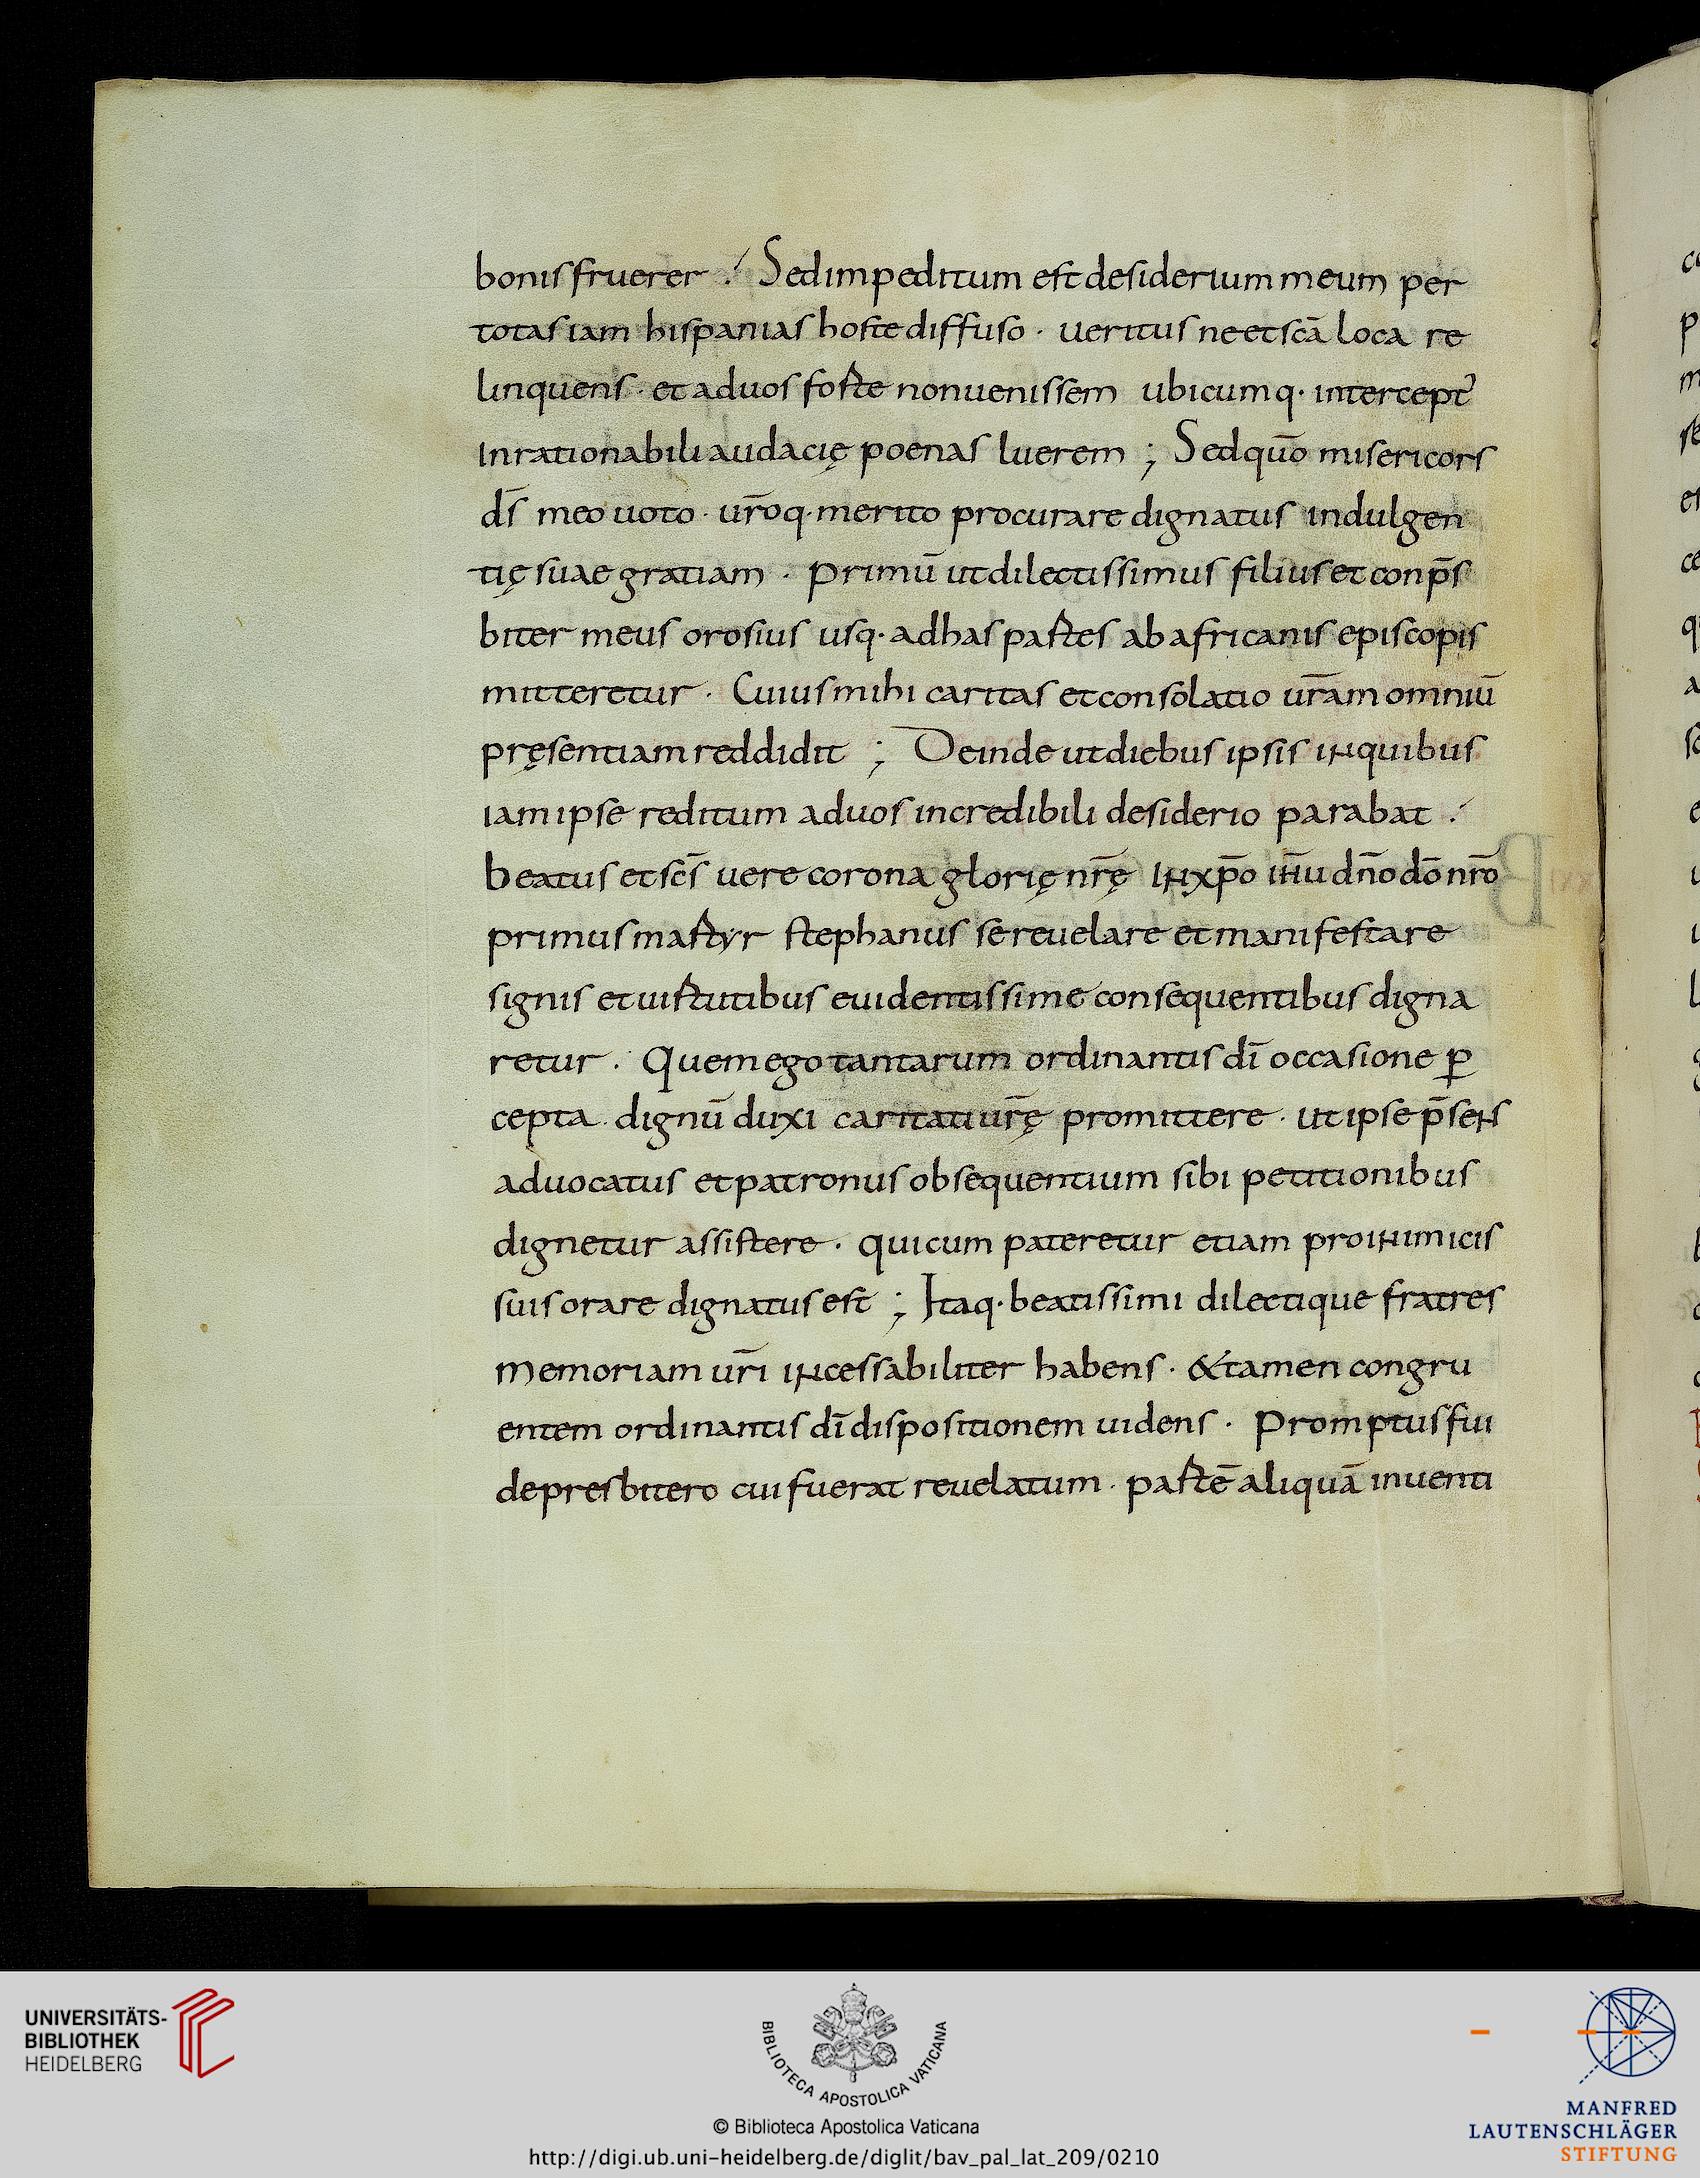 bonis fruerer. Sed impeditum est desiderium meum per
totas iam hispanias hoste diffuso · ueritus ne et scā loca re
linquens · et ad uos forte non uenissem ubicumq· intercept᾽
Inrationabili audacię poenas luerem ; Sed quō misericors
ds̄ meo uoto · ur̄oq· merito procurare dignatus indulgen
tię suae gratiam · primū ut dilectissimus filius et conp̄s
biter meus orosius usq· ad has partes ab africanis episcopis
mitteretur · Cuius mihi caritas et consolatio ur̄am omniū
pręsentiam reddidit ; Deinde ut diebus ipsis in quibus
iam ipse reditum ad uos incredibili desiderio parabat .
beatus et sc̄s uere corona glorię nr̄ę In xp̄o ih̄u dn̄o dō nr̄o
primus martyr stephanus se reuelare et manifestare
signis et uirtutibus euidentissime consequentibus digna
retur . Quem ego tantarum ordinantis dī occasione p̲
cepta · dignū duxi caritati ur̄ę promittere · ut ipse p̄sens
aduocatus et patronus obsequentium sibi petitionibus
dignetur assistere · qui cum pateretur etiam pro inimicis
suis orare dignatus est ; Itaq· beatissimi dilectique fratres
memoriam ur̄i incessabiliter habens · &tamen congru
entem ordinantis dī dispositionem uidens · Promptus fui
de presbitero cui fuerat reuelatum · partē aliquā inuenti
UNIVERSITÄTS-
BIBLIOTHEK
HEIDELBERG
BIBLIOTECA APOSTOLICA VATICANA
© Biblioteca Apostolica Vaticana
http://digi.ub.uni-heidelberg.de/diglit/bav_pal_lat_209/0210
MANFRED
LAUTENSCHLÄGER
STIFTUNG